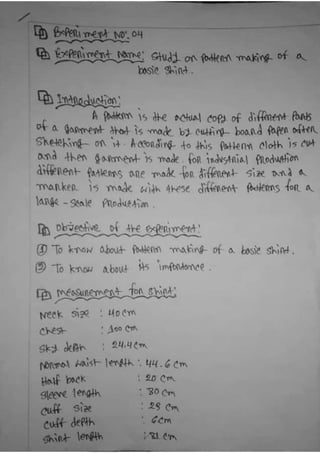 Experiment NO: 04
Experiment Name: Study on Pattern making of a
basic Shirt.
Introduction:
A Pattern is the actual copy of different Parts
of a garment that is made by cuting board paper after
Sketching on it. According to this Pattern cloth is cut
and then garment is made. for industrial Production
different patterns are made for different size and a
marker is made with these different Patterns for a
large - scale Production.
Objective of the experiment:
① To know about Pattern making of a basic Shirt.
② To know about its importance.
Measurement for shirt:
Neck size : 40 cm
Chest : 100 cm
Sky depth : 24.4 cm
Normal Waist length : 44.6 cm
Half back : 20 cm
Sleeve length : 80 cm
Cuff size : 25 cm
Cuff depth : 6 cm
Shirt length : 81 cm